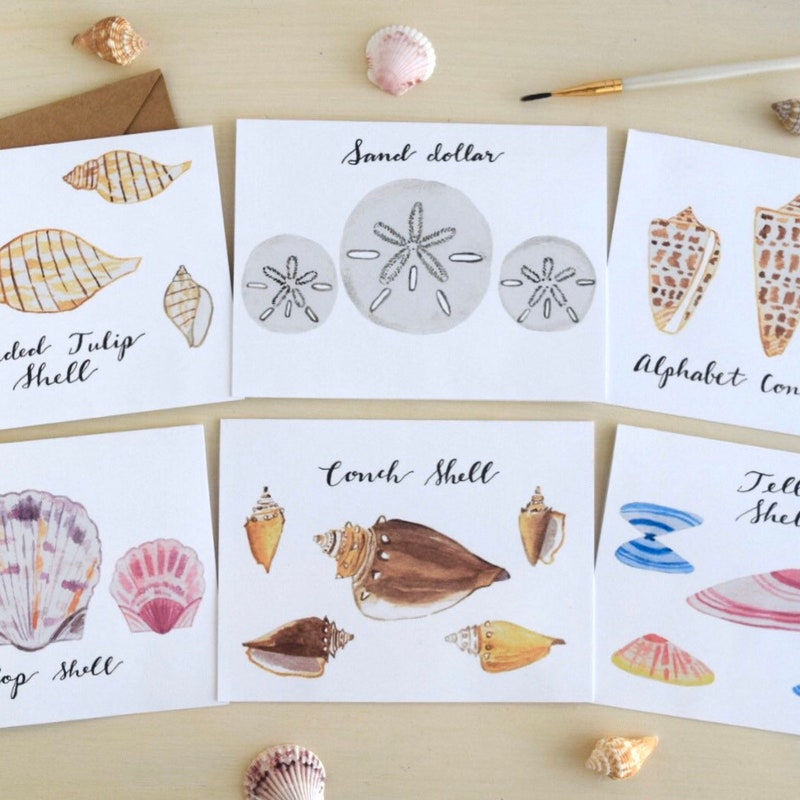 Sand dollar
nded Tulip
Shell
Alphabet Con
Conch Shell
Tell
Shel
op Shell